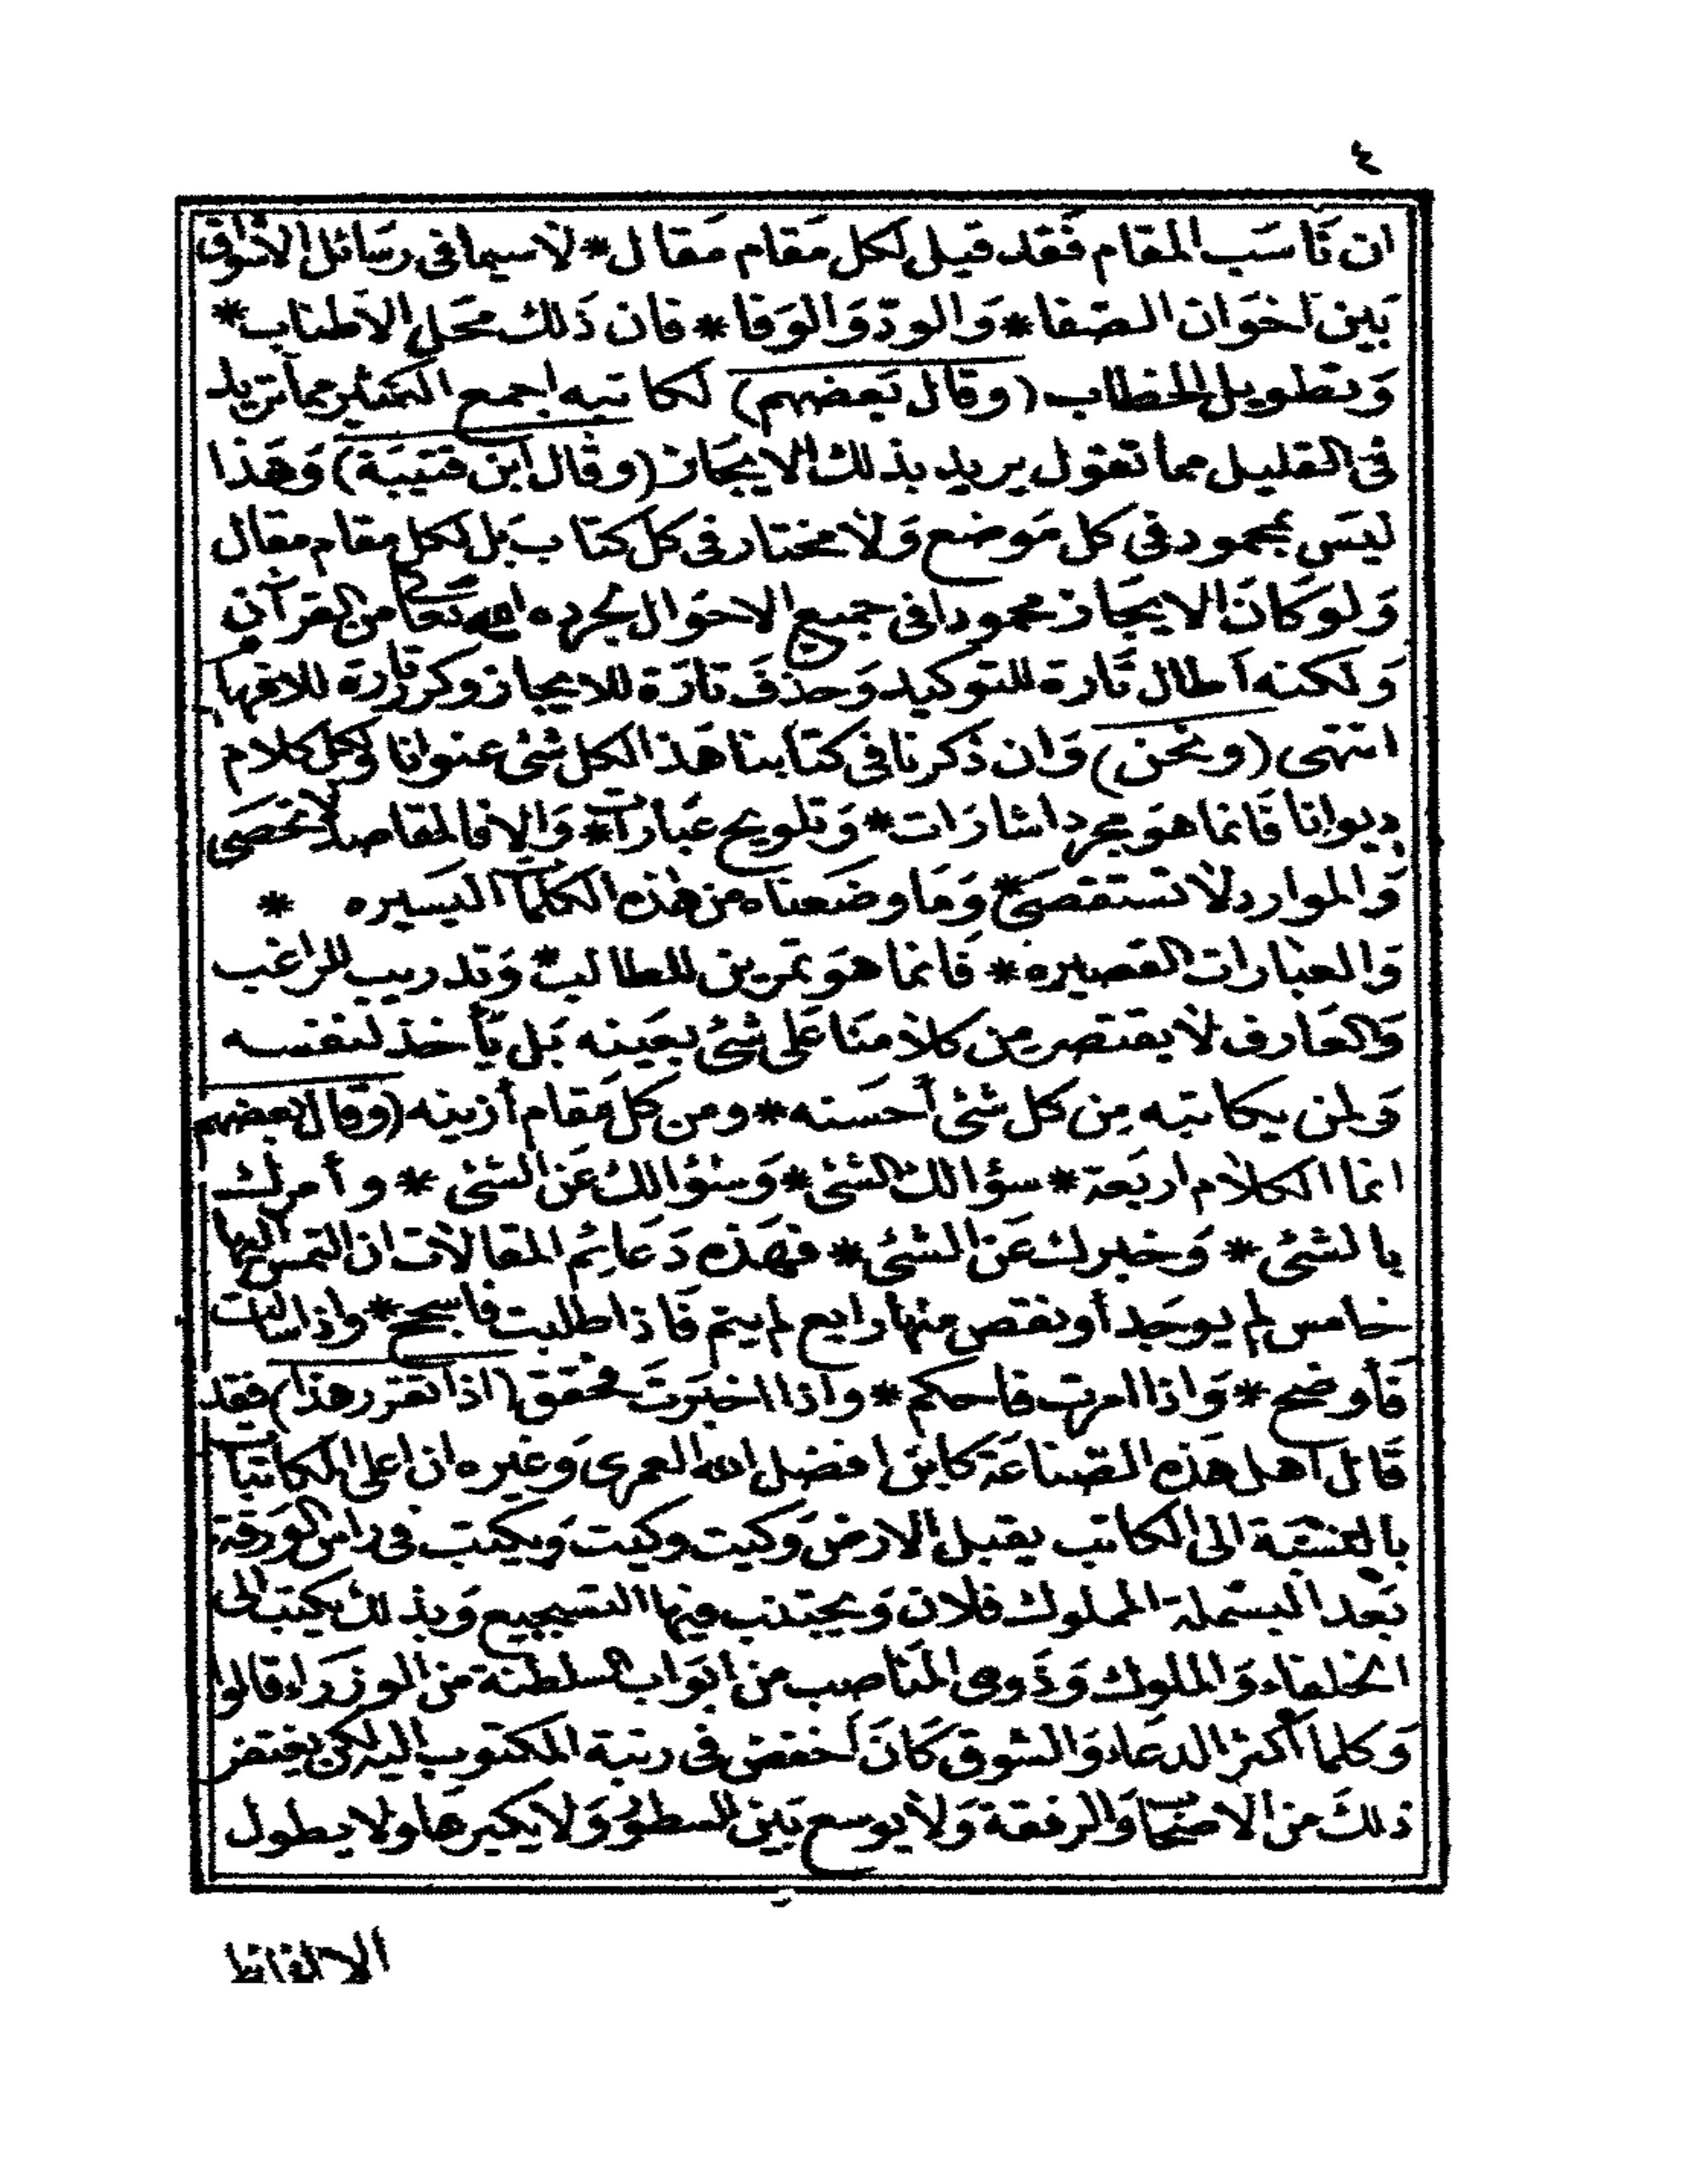 ٤
ان نَاسَب المقام فَقد قيل لكل مَقام مَقال * لاَسيما فى رسَائل الاشواق
بَين اخوَان الصّفا * وَالودّ وَالوَفا * فان ذَلك محَل الاطناب *
وَتطويل الخطاب (وقال بَعضهم) لكاتبه اجمع الكثير مما تريد
فى القليل مما تقول يريد بذلك الايجَاز (وقال ابن قتيبَة) وَهَذا
ليسَ بمحمود فى كل مَوضع وَلاَ مختار فى كل كتاب بَل لكل مقام مقال
وَلو كانَ الايجَاز محمودا فى جميع الاحوَال لجرده الله تعَالى من القرآن
وَلكنه اطال تَارة للتوكيد وَحذفَ تارَة للايجاز وكرر تارة للافهام
انتهى (ونحن) وَان ذكرنا فى كتَابنا هَذا لكل شئ عنوانا ولكل كلام
ديوانا فَانما هوَ مجرد اشارَات * وَتلويح عبَارات * وَالا فالمقاصد لاَ تحصَى
وَالموارد لاَ تستقصَى * وَمَا وضَعناه من هٰذه الكلمَات اليَسيره *
وَالعبَارات القصيره * فَانما هوَ تمرين للطالب * وَتدريب للراغب
وَالعَارف لاَ يقتصر مِن كلاَمنَا عَلى شئ بعَينه بَل يَأخذ لنفسه
وَلمن يكاتبه مِن كل شئ أحسَنه * ومن كل مَقام أزينه (وقال بعضهم)
انما الكلاَم اربَعة * سؤالك الشئ * وَسؤالك عَن الشئ * وأمرك
بالشئ * وَخبرك عَن الشئ * فهَذه دَعائِم المقالاَت ان التمس اليها
خامس لم يوجَد أو نقص منها رابع لم يتم فَاذا طلبت فاسجح * واذا سألت
فَأوضح * وَاذا امرت فاحكم * واذا اخبَرتَ فحقق (اذا تقرر هذا) فقد
قَال اَهل هَذه الصّناعَة كابن افضل الله العمرى وَغيره ان اعلى المكاتبات
بالنسْبَة الى الكاتب يقبل الارضَ وَكيت وكيت وَيكتب فى راس الوَرقة
بَعد البسملة المملوك فلان وَيجتنب فيها التسجيع وَبذلك يكتب الى
الخلفاء وَالملوك وَذَوى المنَاصب من ابوَاب السلطنة من الوزرَاء قالوا
وَكلما أكثر الدعَاء وَالشوق كانَ أخفض فى رتبة المكتوب اليه لكن يغتفر
ذلكَ من الاصحَاب وَالرفقة وَلاَ يوسع بَين السطور وَلاَ يكبرهَا ولا يطول
الالفاظ